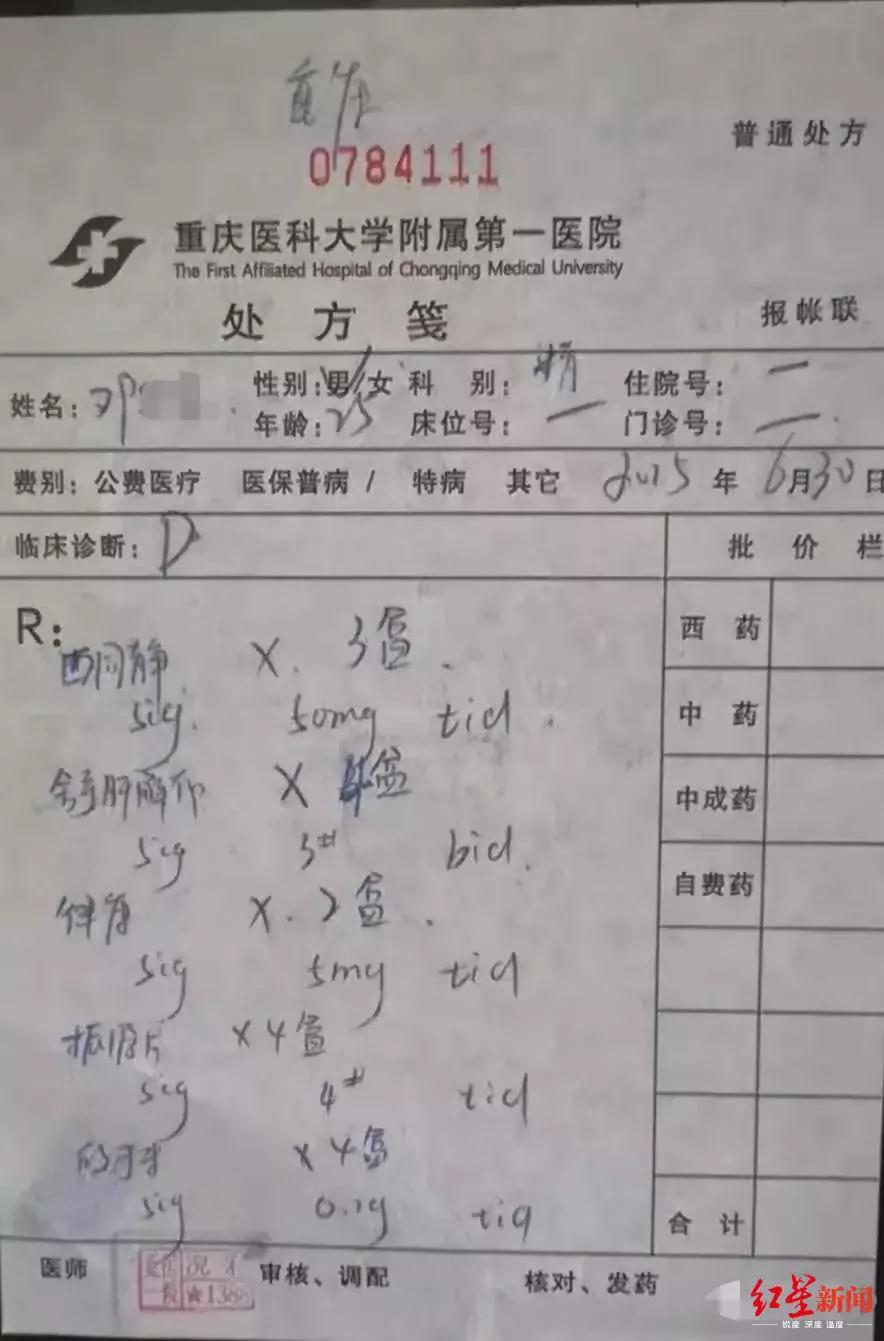 0784111
普通处方
重庆医科大学附属第一医院
The First Affiliated Hospital of Chongqing Medical University
处方笺
报帐联
姓名：邓 性别：男/女 科别：精 住院号：一
年龄：25 床位号：一 门诊号：一
费别：公费医疗 医保普病/ 特病 其它 2015年6月30日
临床诊断：D 批价栏
R：
西同静 X. 3盒.
sig. 50mg tid.
舒肝解郁 X 4盒
sig 3# bid.
X. 2盒.
sig 5mg tid
振源片 X4盒
sig 4# tid
X4盒
sig 0.2g tid
西药
中药
中成药
自费药
合计
医师 审核、调配 核对、发药
★138
红星新闻
锐度 深度 温度